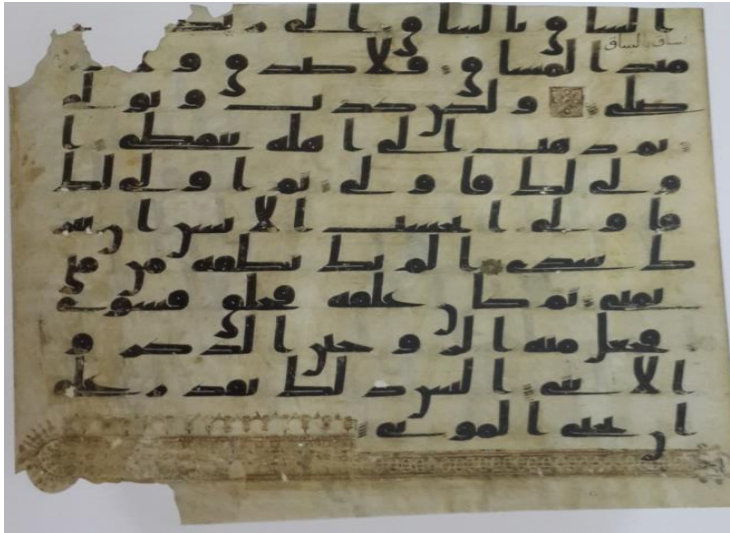 الساق بالساق الى ربك يو
مئذ المساق فلا صدق و
ساق بالساق
صلى ولكن كذب وتولى
ثم ذهب الى اهله يتمطى ا
ولى لك فاولى ثم اولى لك
فاولى ايحسب الانسن ان يتر
ك سدى الم يك نطفة من مني
يمنى ثم كان علقة فخلق فسوى
فجعل منه الزوجين الذكر و
الانثى اليس ذلك بقدر على
ان يحيى الموتى